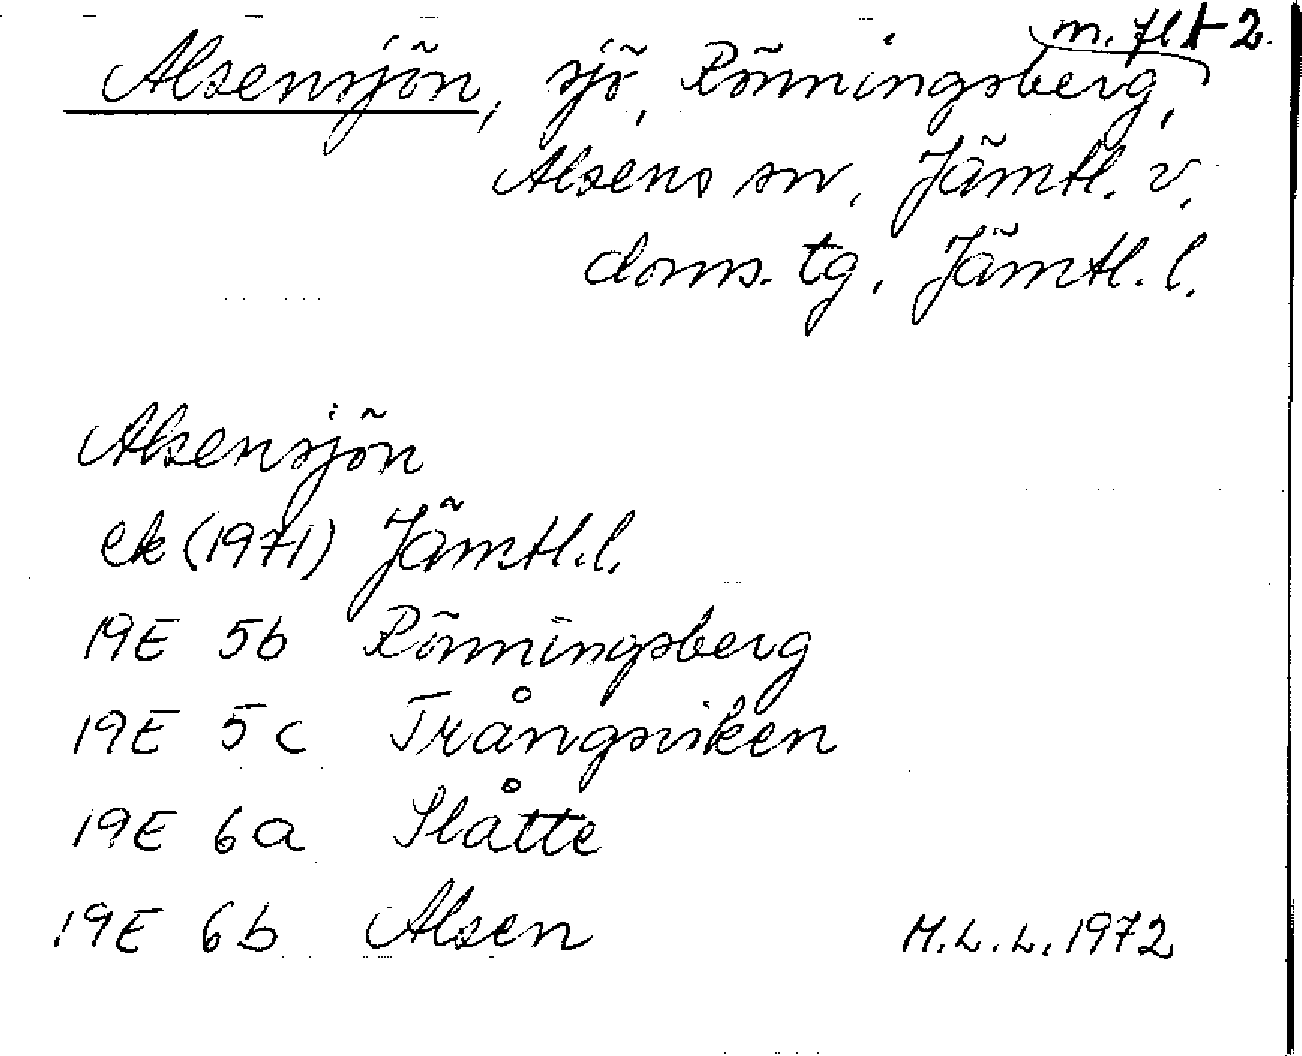 m. fl + 2.
Alsensjön, sjö, Rönningsberg,
Alsens sn, Jämtl. v.
doms. tg, Jämtl. l.
Alsensjön
ek (1971) Jämtl. l.
19E 5b Rönningsberg
19E 5c Trångsviken
19E 6a Slåtte
19E 6b Alsen M.L.L. 1972